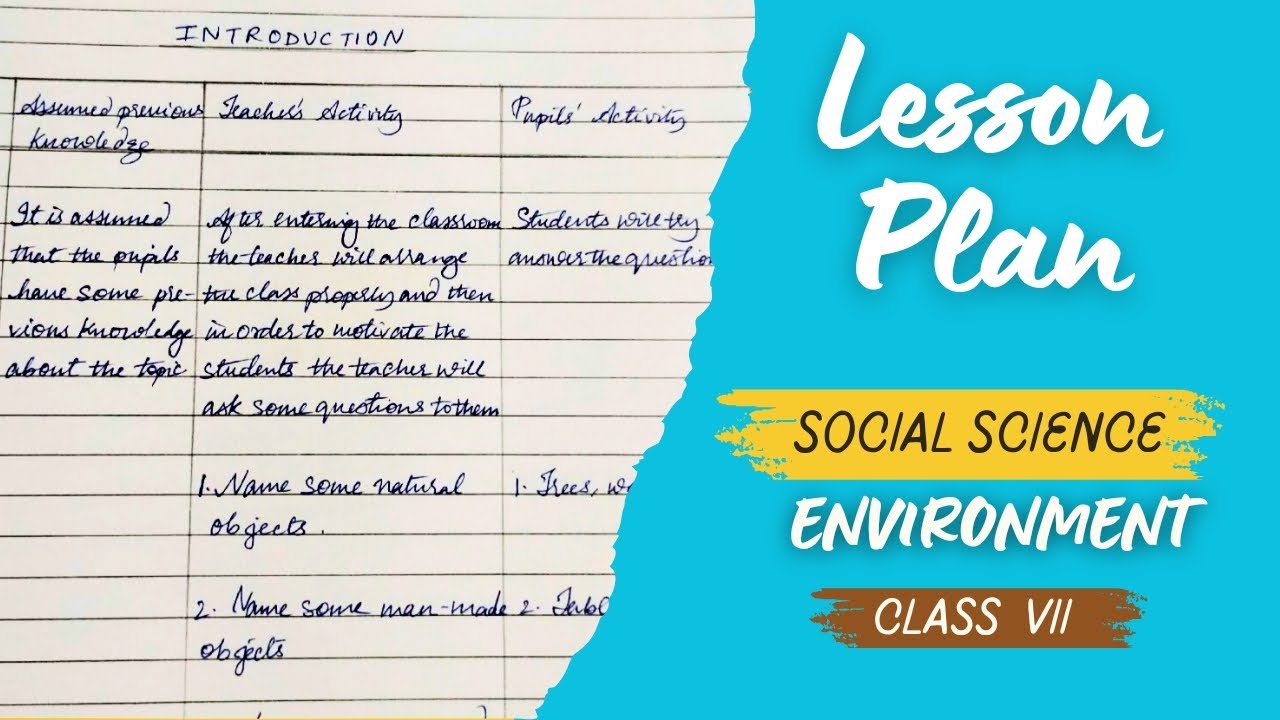 INTRODUCTION
Assumed previous
Knowledge
It is assumed
that the pupils
have some pre-
vious knowledge
about the topic
Teacher's Activity
After entering the classroom
the teacher will arrange
the class properly and then
in order to motivate the
students the teacher will
ask some questions to them
1. Name some natural
objects.
2. Name some man-made
objects
Pupils' Activity
Students will try
answer the question
1. Trees,
2. Tabl
Lesson
Plan
SOCIAL SCIENCE
ENVIRONMENT
CLASS VII